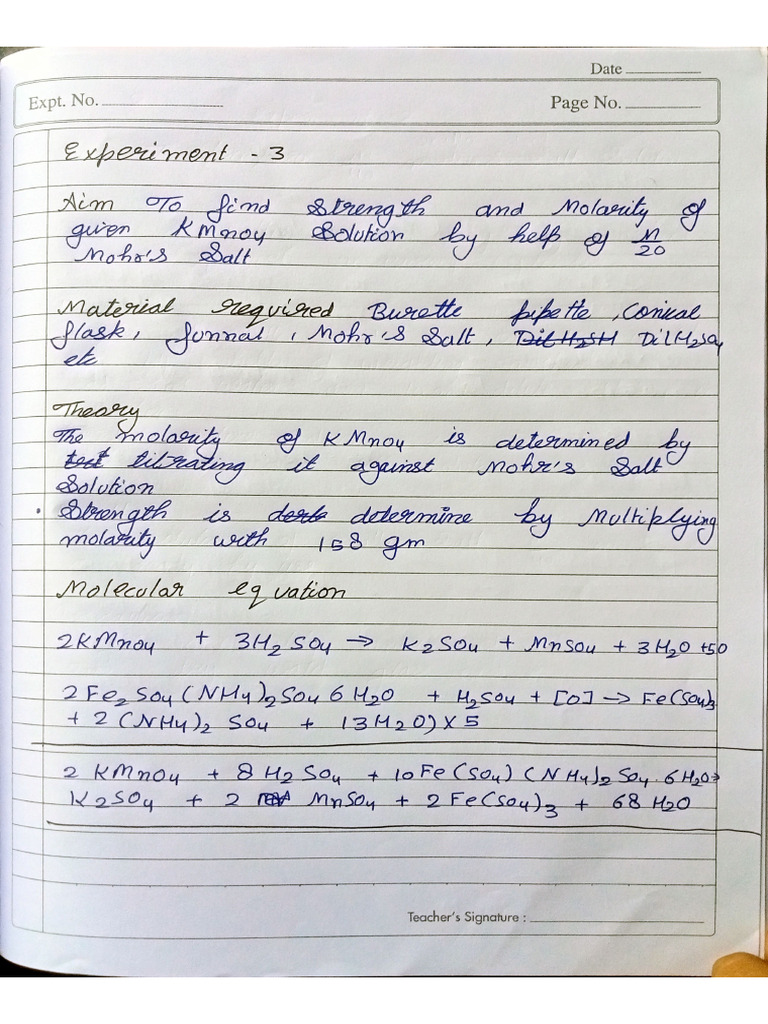 Date
Expt. No.
Page No.
Experiment - 3
Aim To find Strength and Molarity of
given KMnO4 Solution by help of M/20
Mohr's Salt
Material required Burette pipette, Conical
flask, funnal, Mohr's Salt, Dil H2SH Dil H2SO4
etc
Theory
The molarity of KMnO4 is determined by
test titrating it against Mohr's Salt
Solution
• Strength is determine by Multiplying
molarity with 158 gm
Molecular equation
2KMnO4 + 3H2SO4 → K2SO4 + MnSO4 + 3H2O +5O
2Fe2SO4(NH4)2SO4 6H2O + H2SO4 + [O] → Fe(SO4)3
+ 2(NH4)2 SO4 + 13H2O) X 5
2 KMnO4 + 8H2SO4 + 10Fe(SO4)(NH4)2SO4. 6H2O→
K2SO4 + 2 MnSO4 + 2Fe(SO4)3 + 68 H2O
Teacher's Signature :